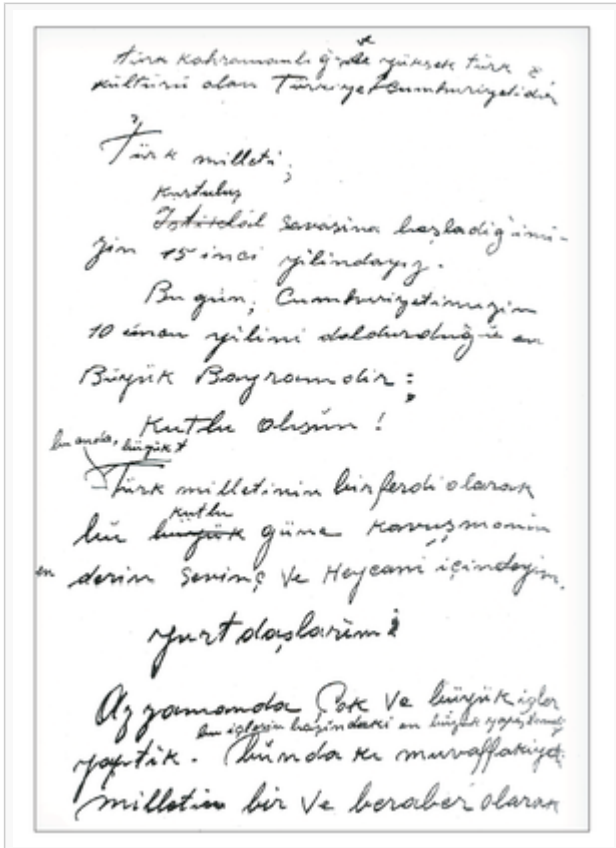 türk kahramanlığı ve yüksek türk
kültürü olan Türkiye Cumhuriyetidir
Türk milleti;
Kurtuluş
İstiklâl savaşına başladığımı-
zın 15 inci yılındayız.
Bu gün, Cumhuriyetimizin
10 uncu yılını doldurduğu en
Büyük Bayramdır;
Kutlu olsun!
bu anda, büyük
Türk milletinin bir ferdi olarak
kutlu
bu büyük güne kavuşmanın
en derin sevinç ve Heycanı içindeyim.
yurtdaşlarım!
Az zamanda Çok ve büyük işler
bu işlerin başındaki en büyük
yaptık. bunda ki muvaffakiyeti
milletin bir ve beraber olarak